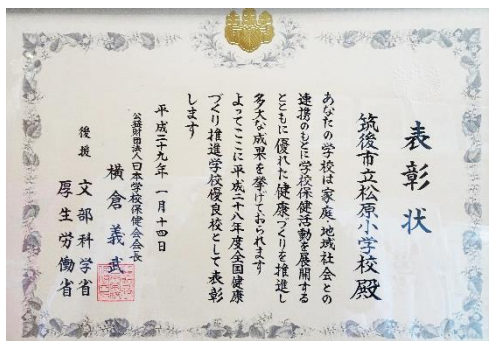 表彰状
筑後市立松原小学校殿
あなたの学校は家庭、地域社会との
連携のもとに学校保健活動を展開する
とともに優れた健康つくりを推進し
多大な成果を挙げておられます
よってここに平成二十八年度全国健康
づくり推進学校優良校として表彰
します
平成二十九年一月十四日
公益財団法人日本学校保健会会長
横倉義武
後援 文部科学省
厚生労働省